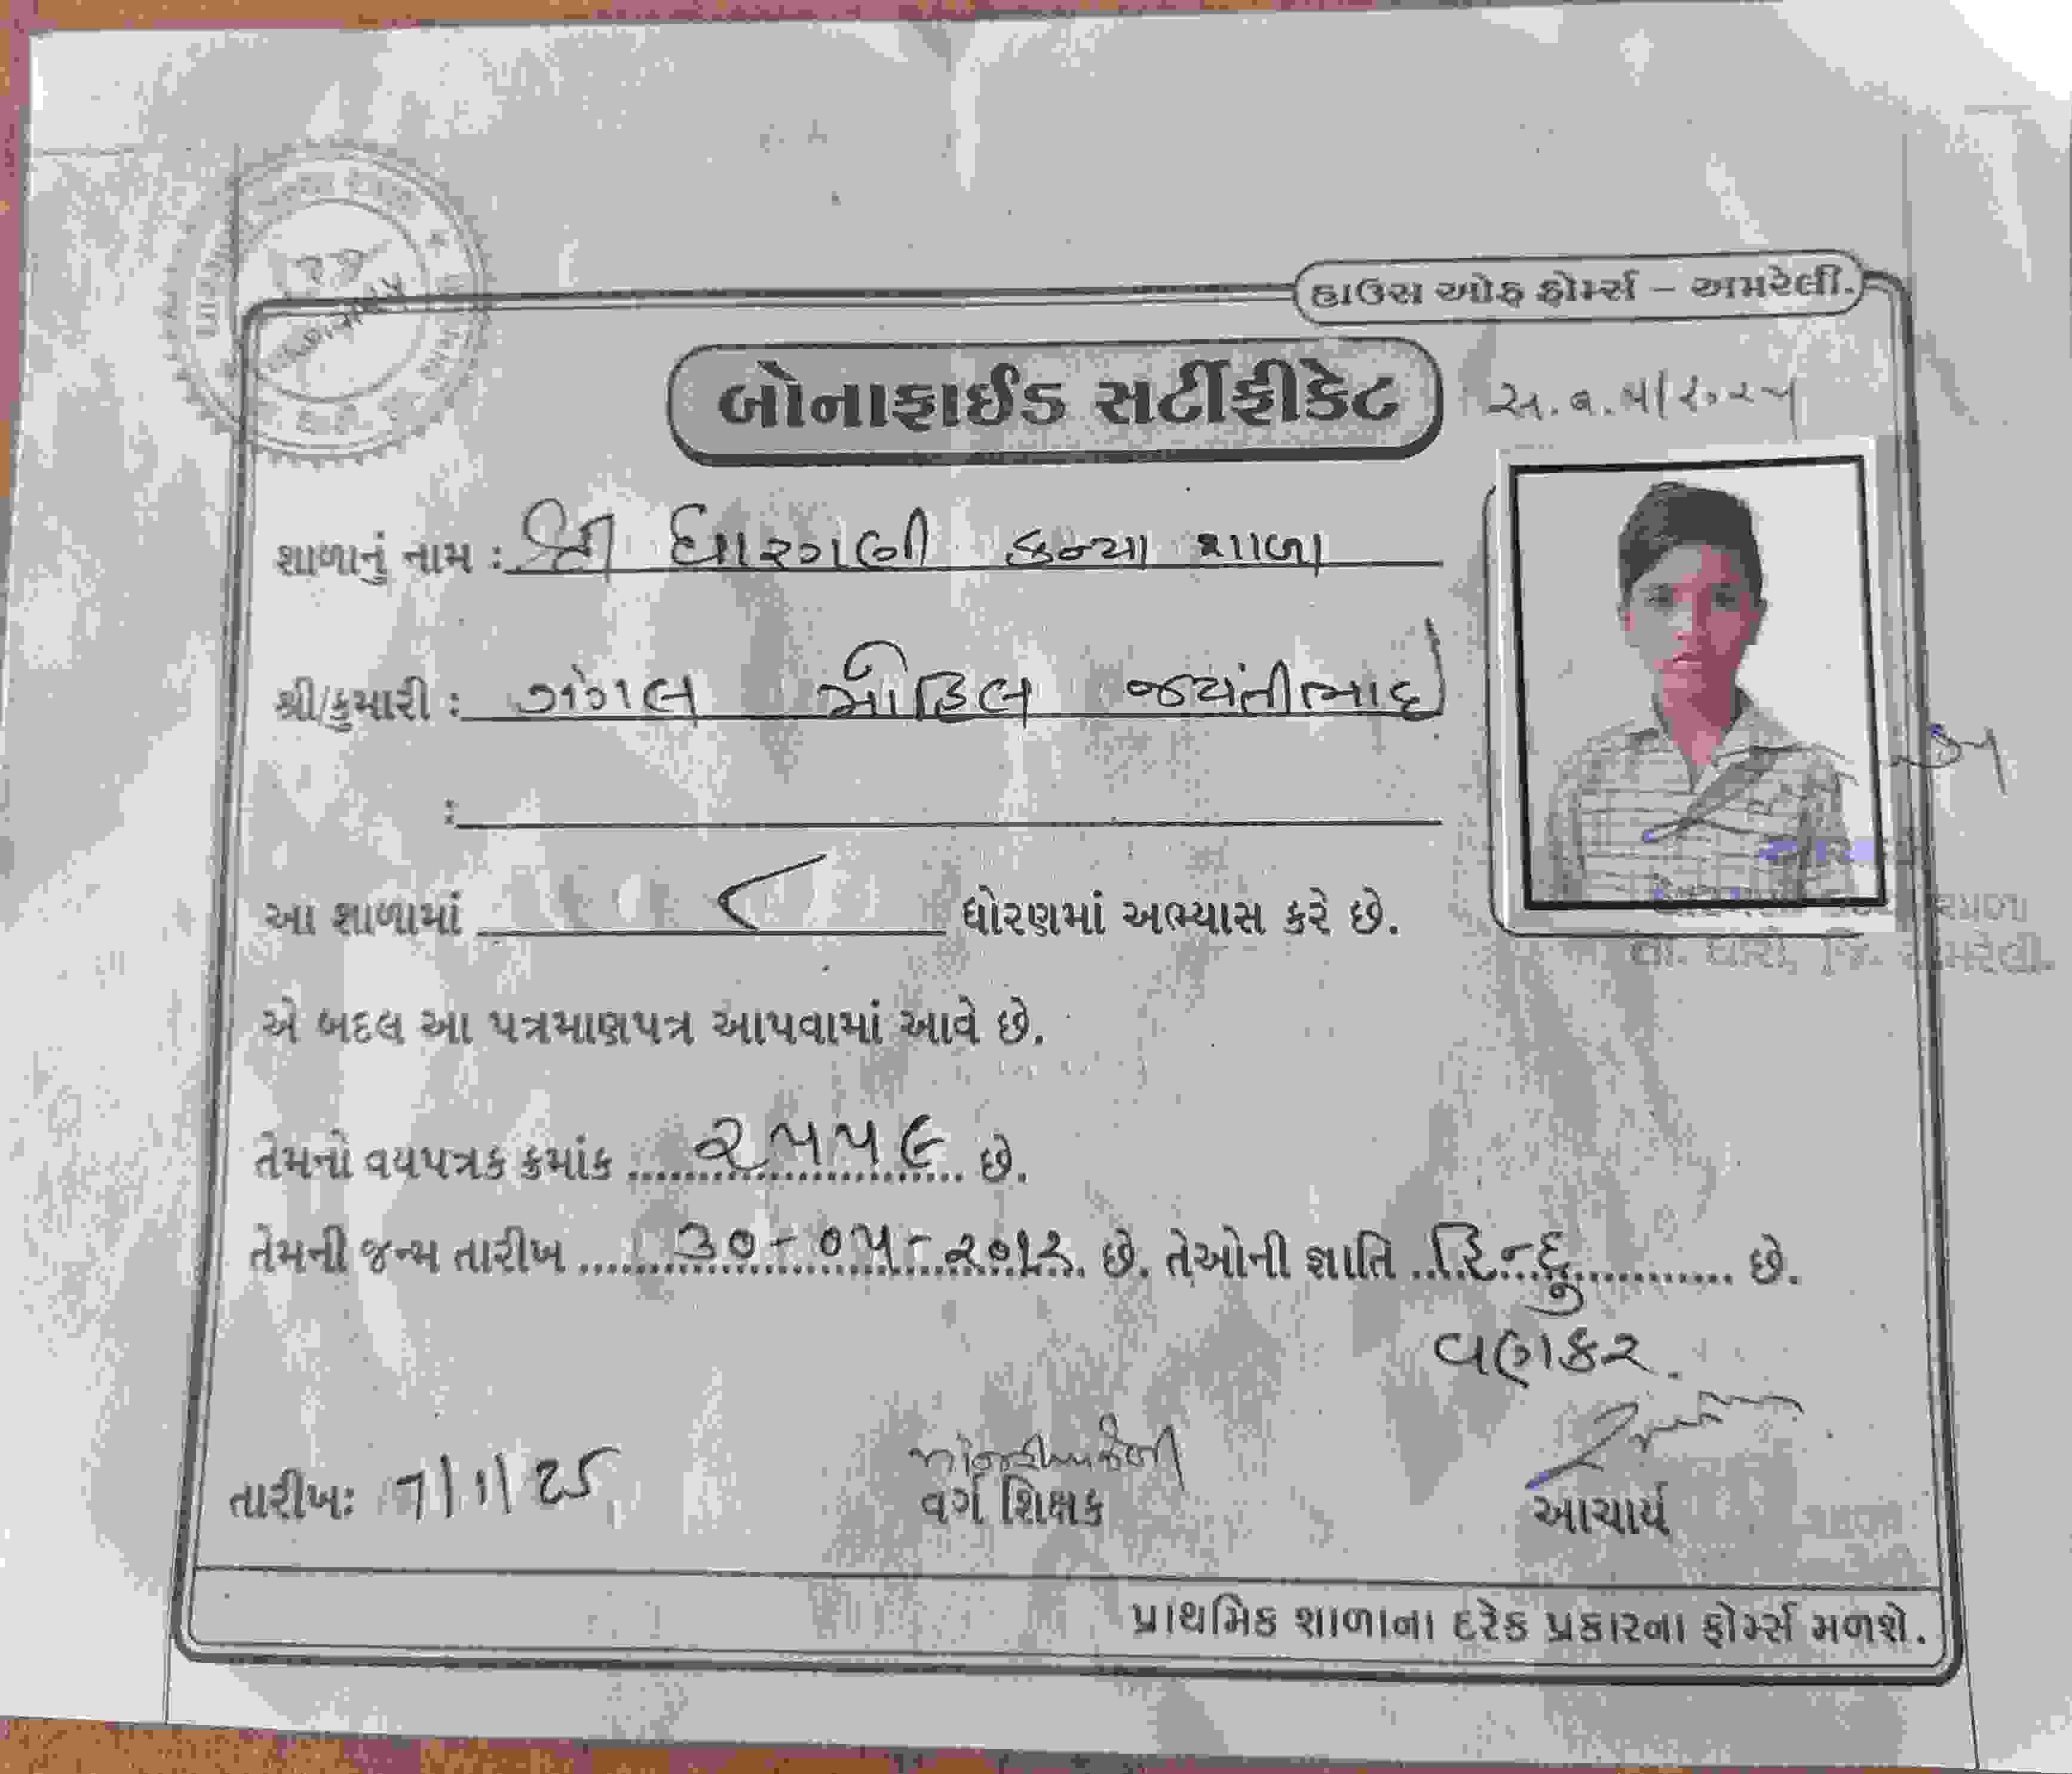 હાઉસ ઓફ ફોર્મ્સ – અમરેલી.
બોનાફાઈડ સર્ટીફીકેટ
શાળાનું નામ : શ્રી ધારગણી કન્યા શાળા
શ્રી/કુમારી : જયંતીભાઈ
:
આ શાળામાં ૮ ધોરણમાં અભ્યાસ કરે છે.
એ બદલ આ પત્રમાણપત્ર આપવામાં આવે છે.
તેમનો વયપત્રક ક્રમાંક ૨૫૫૯ છે.
તેમની જન્મ તારીખ ૩૦-૦૫-૨૦૧૨ છે. તેઓની જ્ઞાતિ હિન્દુ છે.
વણકર.
તારીખઃ 7/1/25
વર્ગ શિક્ષક
આચાર્ય
તા. ધારી, જિ. અમરેલી.
પ્રાથમિક શાળાના દરેક પ્રકારના ફોર્મ્સ મળશે.